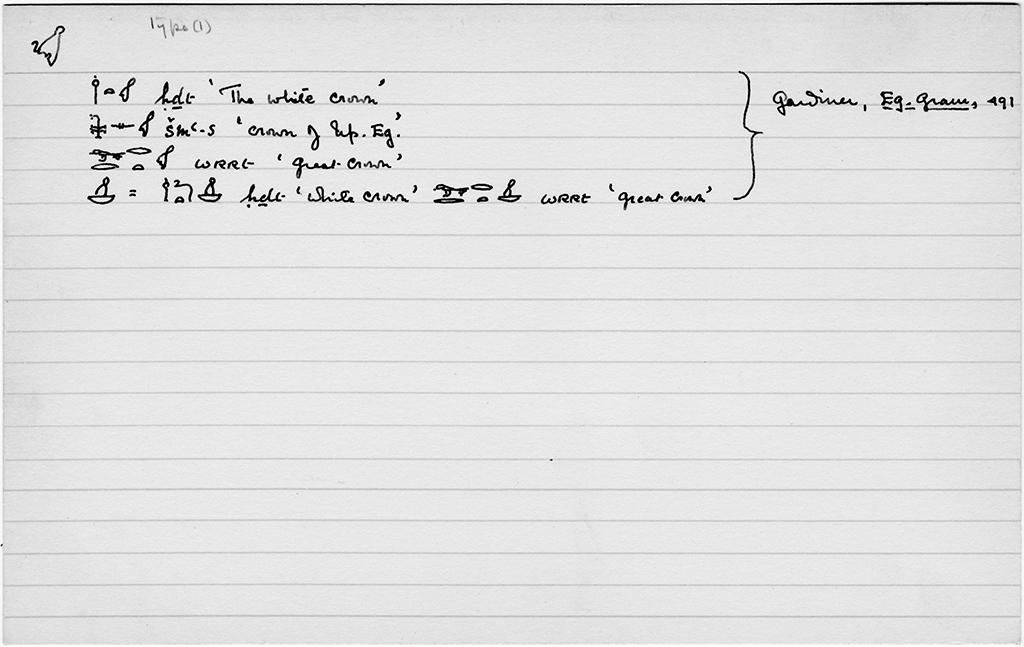 Type (1)
ḥḏt 'The white crown'
šmꜥ-s 'crown of Up. Eg.'
wrrt 'great crown'
= ḥḏt 'white crown' wrrt 'great crown'
Gardiner, Eg. Gram., 491